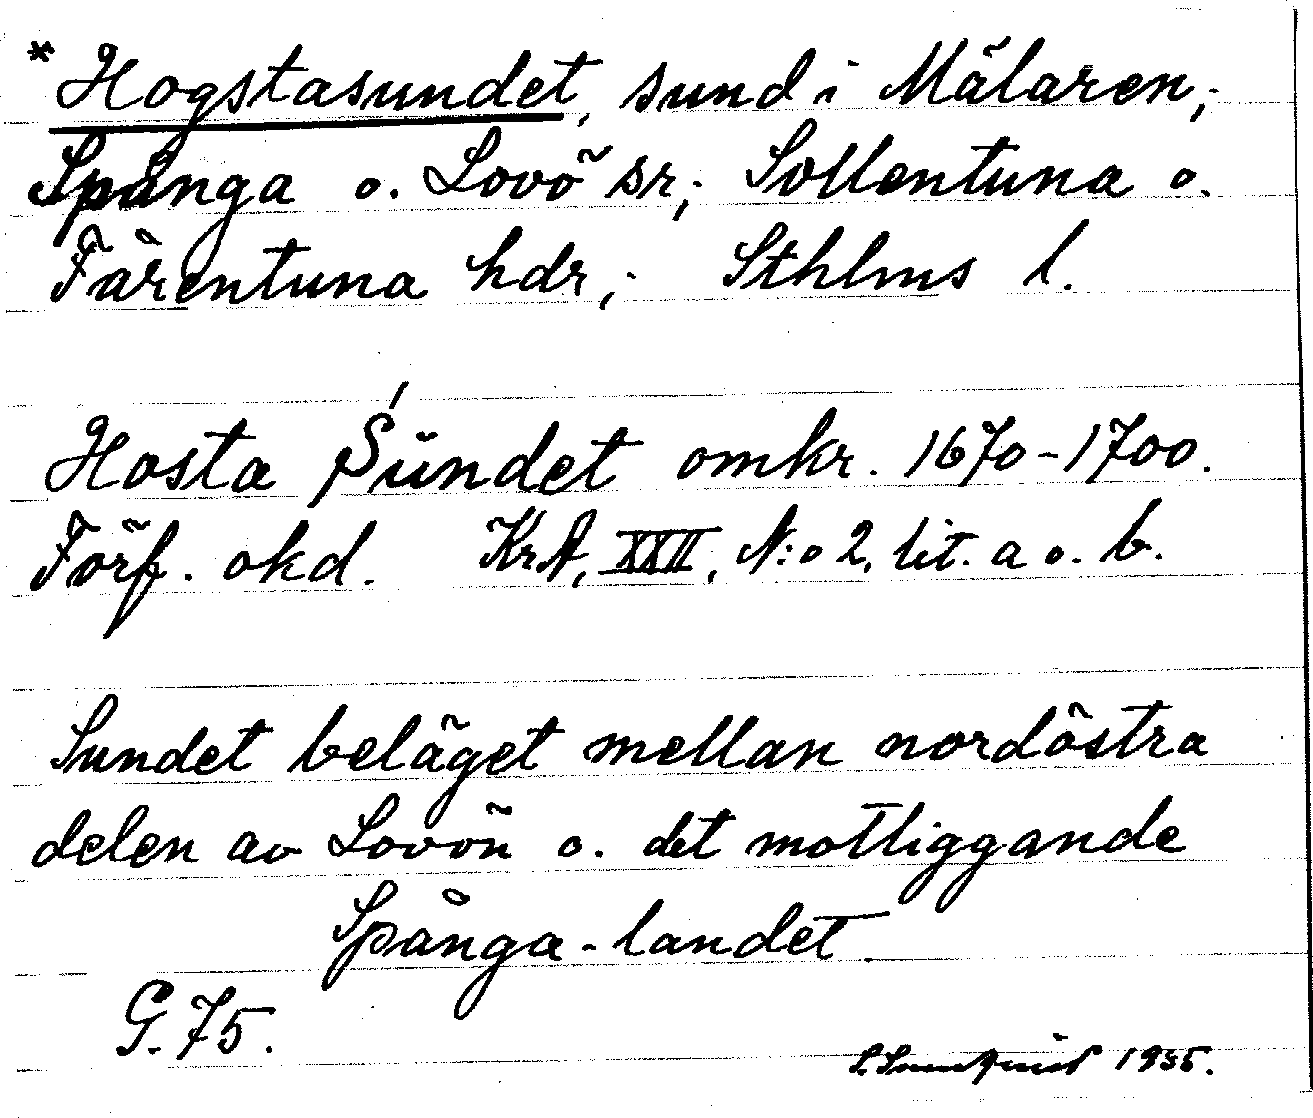 *Hogstasundet, sund i Mälaren;
Spånga o. Lovö sr; Sollentuna o.
Färentuna hdr; Sthlms l.
Hosta Sŭndet omkr. 1670-1700.
Förf. okd. KrA, XXII, N:o 2, lit. a o. b.
Sundet beläget mellan nordöstra
delen av Lovön o. det motliggande
Spånga-landet.
G. 75.
1935.